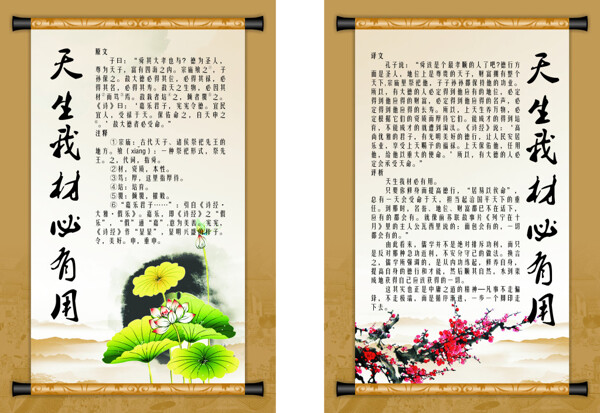 天生我材必有用
原文
子曰：“舜其大孝也与？德为圣人，
尊为天子，富有四海之内。宗庙飨之①，子
孙保之。故大德必得其位，必得其禄，必
得其名，必得其寿。故天之生物，必因其
材②而笃③焉。故栽者培④之，倾者覆⑤之。
《诗》曰：‘嘉乐君子，宪宪令德。宜民
宜人，受禄于天。保佑命之，自天申之
⑥。’故大德者必受命。”
注释
①宗庙：古代天子、诸侯祭祀先王的
地方。飨（xiang）：一种祭祀形式，祭先
王。之，代词，指舜。
②材，资质，本性。
③笃：厚，这里指厚待。
④培：培育。
⑤覆：倾覆，摧败。
⑥“嘉乐君子……”：引自《诗经·
大雅·假乐》。嘉乐，即《诗经》之“假
乐”，“假”通“嘉”，意为美善。宪宪，
《诗经》作“显显”，显明兴盛的样子。
令，美好。申，重申。
译文
孔子说：“舜该是个最孝顺的人了吧？德行方
面是圣人，地位上是尊贵的天子，财富拥有整个
天下，宗庙里祭祀他，子子孙孙都保持他的功业。
所以，有大德的人必定得到他应有的地位，必定
得到他应得的财富，必定得到他应得的名声，必
定得到他应得的长寿。所以，上天生养万物，必
定根据它们的资质而厚待它们。能成材的得到培
育，不能成材的就遭到淘汰。《诗经》说：‘高
尚优雅的君子，有光明美好的德行，让人民安居
乐业，享受上天赐予的福禄。上天保佑他，任用
他，给他以重大的使命。’所以，有大德的人必
定会承受天命。”
评析
天生我材必有用。
只要你修身而提高德行，“居易以俟命”，
总有一天会受命于天，担当起治国平天下的重
任。到那时，名誉、地位、财富都已不在话下，
应有的都会有。就像前苏联故事片《列宁在十
月》里的主人公瓦西里说的：面包会有的，一切
都会有的。”
由此看来，儒学并不是绝对排斥功利，而只
是反对那种急功近利，不安分守己的做法。换言
之，儒学所强调的，是从内功练起，修养自身，
提高自身的德行和才能，然后顺其自然，水到渠
成地获得自己应该获得的一切。
这其实也正是中庸之道的精神—凡事不走偏
锋，不走极端，而是循序渐进，一步一个脚印走
下去。
天生我材必有用